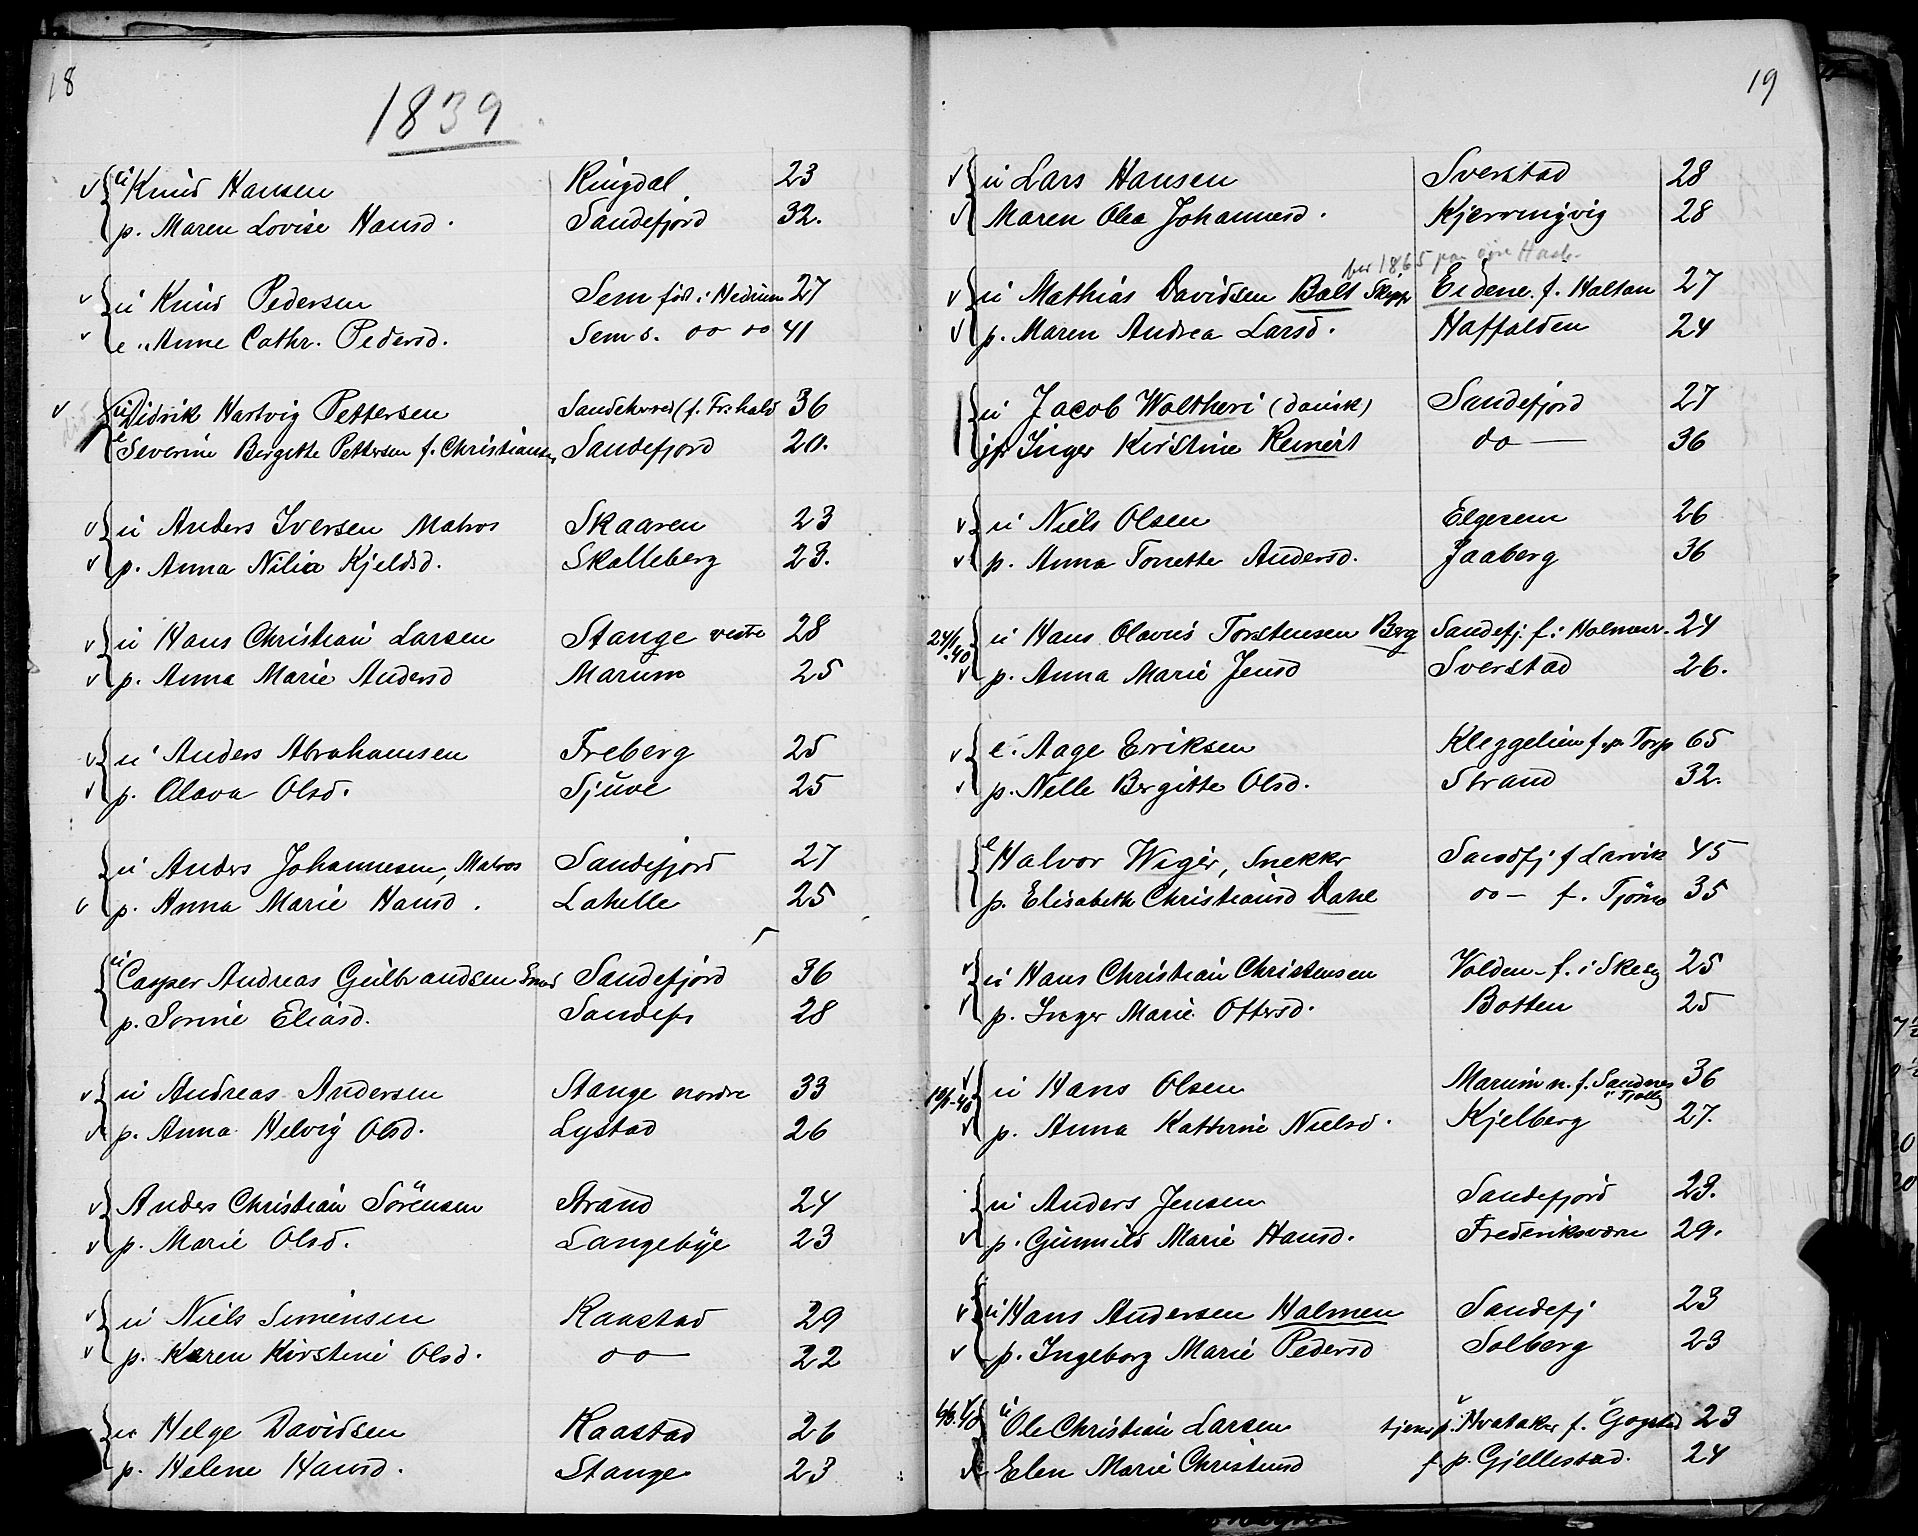 18
1839
u Knud Hansen Ringdal 23
p. Maren Lovise Hansd. Sandefjord 32.
u Knud Pedersen Sem føst i Hedrum 27
e. Anne Cathr. Pedersd. Sem s. do do 41
u Didrik Hartvig Pettersen Sandeherred (f. Fr:hald 36
e Severine Bergitte Pettersen f. Christiansen Sandefjord 20.
u Anders Iversen Matros Skaaren 23
p. Anna Nilia Kjeldsd. Skalleberg 23.
u Hans Christian Larsen Stange vestre 28
p. Anna Marie Andersd Marum 25
u Anders Abrahamsen Freberg 25
p. Olava Olsd. Sjuve 25
u Anders Johannesen, Matros Sandefjord 27
p. Anna Marie Hansd. Lahelle 25
u Casper Andreas Gulbrandsen Smed Sandefjord 36
p. Sorine Eliasd. Sandefj 28
u Andreas Andersen Stange nordre 33
p. Anna Helvig Olsd. Lystad 26
Anders Christian Sörensen Strand 24
p. Marie Olsd. Langebye 23
u Niels Simensen Raastad 29
p. Karen Kirstine Olsd. do 22
u Helge Davidsen Raastad 26
p. Helene Hansd. Stange 23
19
u Lars Hansen Sverstad 28
Maren Olea Johannesd. Kjerringvig 28
bor 1865 paa
u Mathias Davidsen Balt Skipper Eidene. f. Haltan 27
p. Maren Andrea Larsd. Haffalden 24
u Jacob Woltheri (dansk) Sandefjord 27
jfr Inger Kirstine Reinert do — 36
u Niels Olsen Elgesem 26
p. Anna Tonette Andersd. Jaaberg 36
24/1.40 u Hans Olavus Torstensen Berg Sandefj. f. i Holmen. 24
p. Anna Marie Jensd Sverstad 26.
e. Aage Eriksen Kleggelien f. p. Torp 65
p. Nelle Bergitte Olsd. Strand 32.
e Halvor Weger, Snekker Sandfj f Larvik 45
p. Elisabeth Christiansd Dahl do — f. Tjömø 35
u Hans Christian Christensen Volden - f. i Skee 25
p. Inger Marie Ottersd. Botten 25
u Hans Olsen Marum n. f. Sandnes i Tjølling 36
p. Anna Kathrine Nielsd. Kjelberg 27.
u Anders Jensen Sandefjord 23.
p. Gunnild Marie Hansd. Frederiksværn 29.
u Hans Andersen Holmen Sandefj 23
p. Ingeborg Marie Pedersd Solberg 23
u Ole Christian Larsen tjens p. Hvataker f. Gogstad 23
Elen Marie Christensd f p. Gjellestad. 24